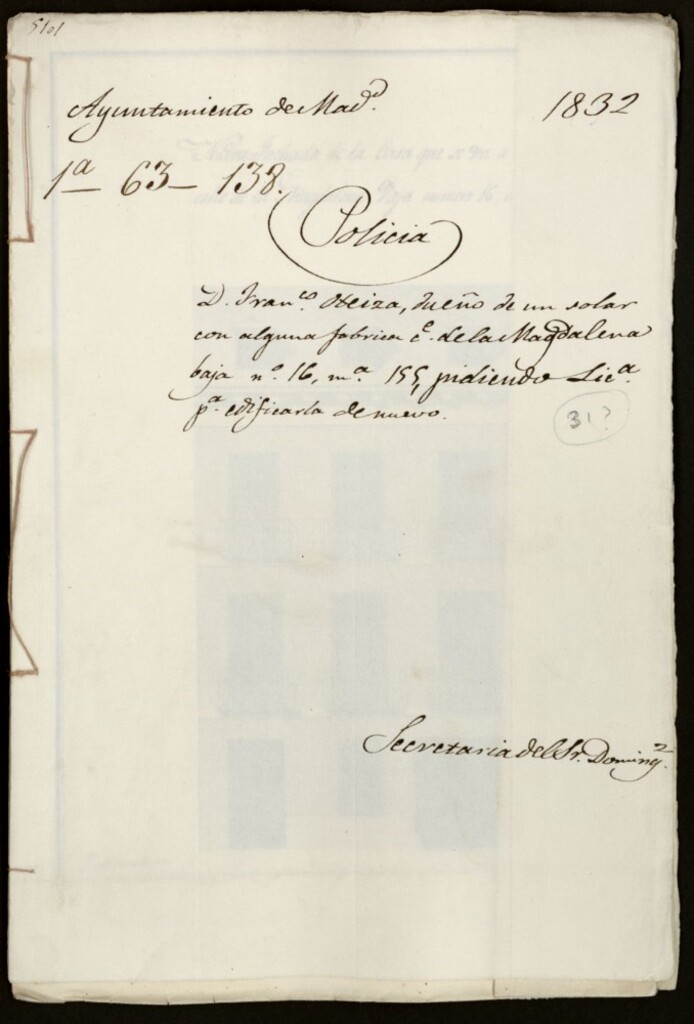 5101
Ayuntamiento de Madᵈ. 1832
1ª 63 - 138.
Policia
D. Franᶜᵒ. Oteiza, dueño de un solar
con alguna fabrica cᵉ. de la Magdalena
baja nº. 16, mª. 155, pidiendo Licª.
pª. edificarla de nuevo.
31?
Secretaria del Sr. Domingᶻ.